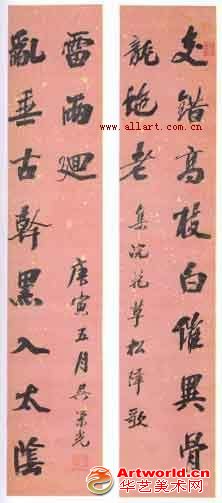 交錯高枝白摧異骨
龍虵老
集浣花草松障歌
亂垂古幹黑入太陰
雷雨迴
庚寅五月吳榮光
www.allart.com.cn
Artworld.cn
华艺美术网